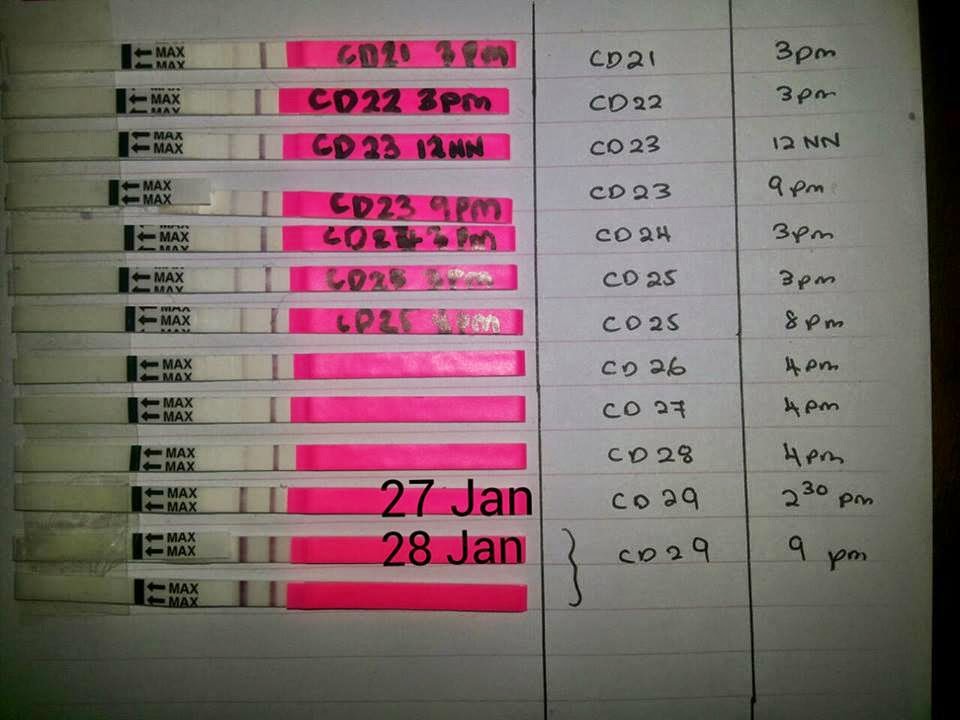 MAX CD21 3pm CD21 3pm
MAX
MAX CD22 3pm CD22 3pm
MAX
MAX
MAX CD23 12NN CD23 12 NN
MAX
MAX CD23 9pm
MAX CD23 9pm
MAX
MAX CD24 3pm CD24 3pm
MAX
MAX CD25 3pm
MAX
MAX
MAX CD25 pm CD25 8pm
MAX
MAX CD 26 4pm
MAX
MAX CD 27 4pm
MAX
MAX CD28 4pm
MAX
MAX 27 Jan CD 29 2 30 pm
MAX
MAX 28 Jan CD 29 9 pm
MAX
MAX
MAX